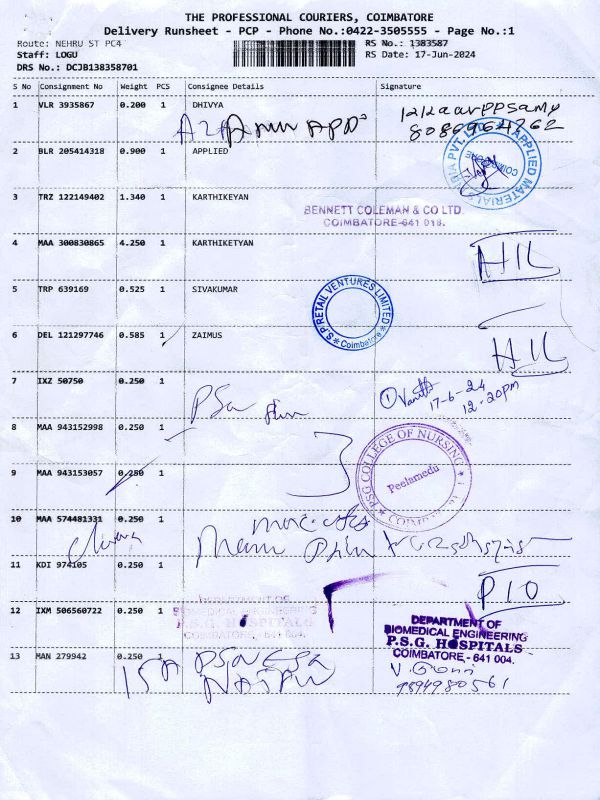 THE PROFESSIONAL COURIERS, COIMBATORE
Delivery Runsheet - PCP - Phone No.:0422-3505555 - Page No.:1
Route: NEHRU ST PC4 RS No.: 1383587
Staff: LOGU RS Date: 17-Jun-2024
DRS No.: DCJB138358701
S No Consignment No Weight PCS Consignee Details Signature
1 VLR 3935867 0.200 1 DHIVYA
8086964262
2 BLR 205414318 0.900 1 APPLIED
APPLIED MATERIALS INDIA PVT. LTD. COIMBATORE
3 TRZ 122149402 1.340 1 KARTHIKEYAN
BENNETT COLEMAN & CO LTD.
COIMBATORE-641 018.
4 MAA 300830865 4.250 1 KARTHIKETYAN
HIL
5 TRP 639169 0.525 1 SIVAKUMAR
P.S.P RETAIL VENTURES LIMITED Coimbatore
6 DEL 121297746 0.585 1 ZAIMUS
HIL
7 IXZ 50750 0.250 1
17-6-24
12.20pm
8 MAA 943152998 0.250 1
PSG COLLEGE OF NURSING Peelamedu COIMBATORE
9 MAA 943153057 0.250 1
10 MAA 574481331 0.250 1
11 KDI 974105 0.250 1
P10
12 IXM 506560722 0.250 1
DEPARTMENT OF
BIOMEDICAL ENGINEERING
P.S.G. HOSPITALS
COIMBATORE - 641 004.
DEPARTMENT OF
BIOMEDICAL ENGINEERING
P.S.G. HOSPITALS
COIMBATORE - 641 004.
13 MAN 279942 0.250 1
9894980561